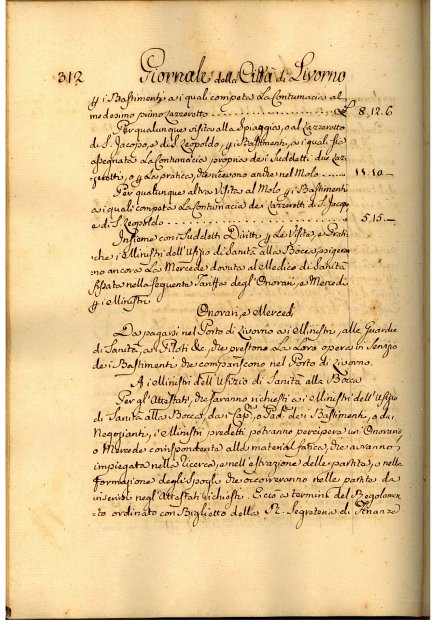 312 Giornale della Città di Livorno
p i Bastimenti a i quali competa La Contumacia al
medesimo primo Lazzeretto £ 8.12.6
Per qualunque visita alla Spiaggia, o al Lazzeretto
di S. Jacopo, e di S. Leopoldo, p i Bastimenti, a i quali sia
assegnata La Contumacia propria de i Suddetti due Laz-
zeretti, o p La pratica, che ricevono anche nel Molo 11.10.—
Per qualunque altra Visita al Molo p i Bastimenti
a i quali competa La Contumacia de Lazzeretti di S. Jacopo
e di S. Leopoldo 5.15.—
Insieme con i Suddetti Diritti p Le Visite, e Prati-
che i Ministri dell'Ufizio di Sanità alla Bocca, esigeran-
no ancora La Mercede dovuta al Medico di Sanità
fissata nella seguente Tariffa degl'Onorarj, e Mercedi
p i Ministri
Onorarj, e Mercedi
Da pagarsi nel Porto di Livorno a i Ministri, alle Guardie
di Sanità, a i Piloti &c, che prestono La Loro opera in Servizio
de i Bastimenti che compariscono nel Porto di Livorno.
A i Ministri dell'Ufizio di Sanità alla Bocca
Per gl'Attestati, che saranno richiesti a i Ministri dell'Ufizio
di Sanità alla Bocca, da i Capni, o Padni de i Bastimenti, o da i
Negozianti, i Ministri predetti potranno percipere un Onorario,
o Mercede corrispondente alla material fatica, che avranno
impiegata nella ricerca, e nell'estrazione delle partite, o nella
formazione degli Spogli che occorreranno nelle partite da
inserirsi negl'Attestati richiesti. E ciò a termini del Regolamen-
to ordinato con Biglietto della R. Segreteria di Finanze